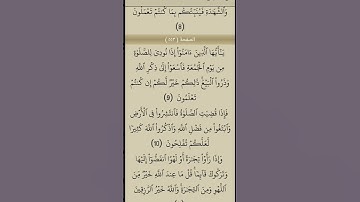 وَٱلشَّهَٰدَةِ فَيُنَبِّئُكُم بِمَا كُنتُمْ تَعْمَلُونَ
(8)
الصفحة ( ٥٥٣ )
يَٰٓأَيُّهَا ٱلَّذِينَ ءَامَنُوٓا۟ إِذَا نُودِىَ لِلصَّلَوٰةِ
مِن يَوْمِ ٱلْجُمُعَةِ فَٱسْعَوْا۟ إِلَىٰ ذِكْرِ ٱللَّهِ
وَذَرُوا۟ ٱلْبَيْعَ ذَٰلِكُمْ خَيْرٌ لَّكُمْ إِن كُنتُمْ
تَعْلَمُونَ (9)
فَإِذَا قُضِيَتِ ٱلصَّلَوٰةُ فَٱنتَشِرُوا۟ فِى ٱلْأَرْضِ
وَٱبْتَغُوا۟ مِن فَضْلِ ٱللَّهِ وَٱذْكُرُوا۟ ٱللَّهَ كَثِيرًا
لَّعَلَّكُمْ تُفْلِحُونَ (10)
وَإِذَا رَأَوْا۟ تِجَٰرَةً أَوْ لَهْوًا ٱنفَضُّوٓا۟ إِلَيْهَا
وَتَرَكُوكَ قَآئِمًا قُلْ مَا عِندَ ٱللَّهِ خَيْرٌ مِّنَ
ٱللَّهْوِ وَمِنَ ٱلتِّجَٰرَةِ وَٱللَّهُ خَيْرُ ٱلرَّٰزِقِينَ